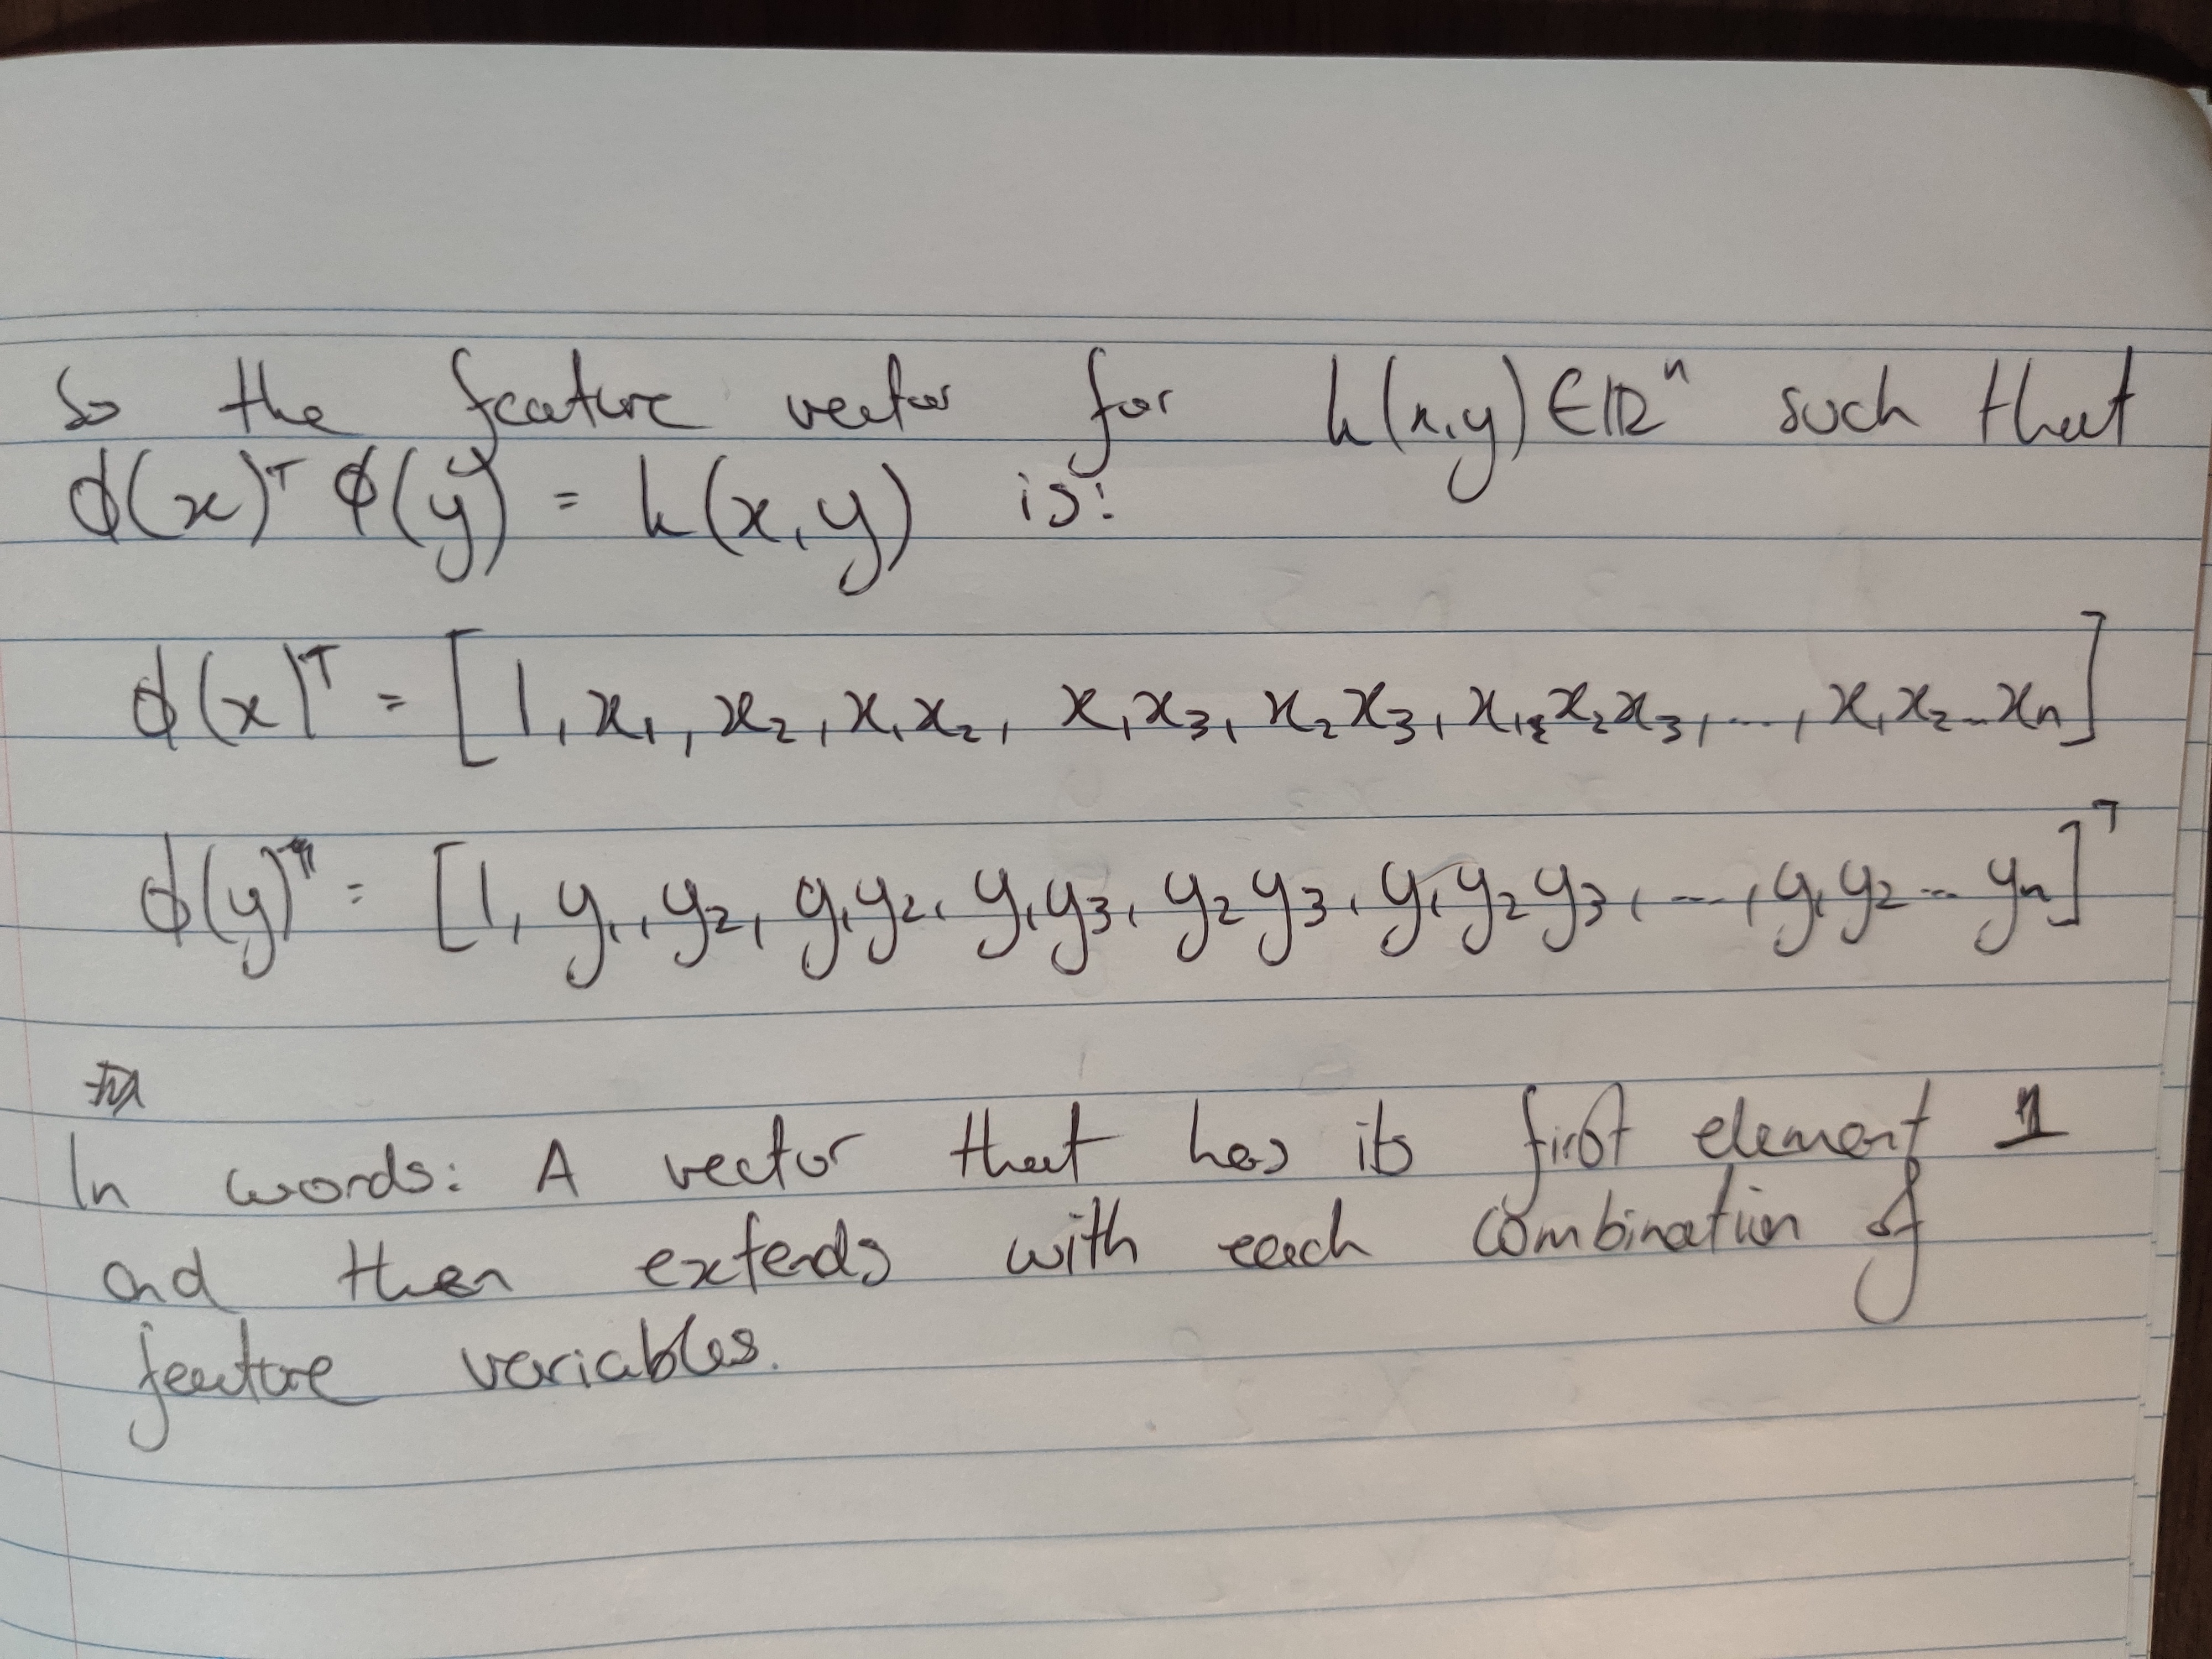 So the feature vector for k(x,y) ∈ ℝⁿ such that
ϕ(x)ᵀ ϕ(y) = k(x,y) is:
ϕ(x)ᵀ = [1, x₁, x₂, x₁x₂, x₁x₃, x₂x₃, x₁x₂x₃, ..., x₁x₂...xₙ]
ϕ(y) = [1, y₁, y₂, y₁y₂, y₁y₃, y₂y₃, y₁y₂y₃, ..., y₁y₂...yₙ]ᵀ
In words: A vector that has its first element 1
and then extends with each combination of
feature variables.